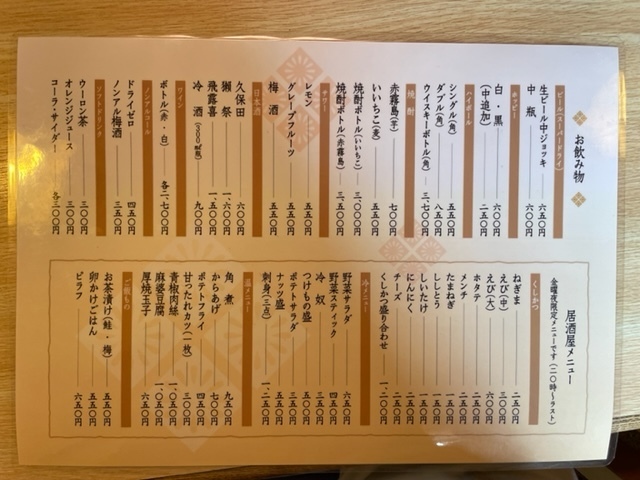 お飲み物
ビール(スーパードライ)
生ビール中ジョッキ 六五〇円
中瓶 六〇〇円
ホッピー
白・黒 六〇〇円
(中追加) 二五〇円
ハイボール
シングル(角) 五五〇円
ダブル(角) 八五〇円
ウイスキーボトル(角) 三、七〇〇円
焼酎
赤霧島(芋) 七〇〇円
いいちこ(麦) 五五〇円
焼酎ボトル(いいちこ) 三、〇〇〇円
焼酎ボトル(赤霧島) 三、五〇〇円
サワー
レモン 五五〇円
グレープフルーツ 五五〇円
梅酒 五五〇円
日本酒
久保田 六〇〇円
獺祭 一、六〇〇円
飛露喜 一、五〇〇円
冷酒 九〇〇円
ワイン
ボトル(赤・白) 各二、七〇〇円
ノンアルコール
ドライゼロ 四五〇円
ノンアル梅酒 三五〇円
ソフトドリンク
ウーロン茶 三〇〇円
オレンジジュース 三〇〇円
コーラ・サイダー 各三〇〇円
居酒屋メニュー
金曜夜限定メニューです(二〇時〜ラスト)
くしかつ
ねぎま 二五〇円
えび(中) 三〇〇円
えび(大) 六〇〇円
ホタテ 二五〇円
メンチ 二五〇円
たまねぎ 一五〇円
ししとう 一五〇円
しいたけ 一五〇円
にんにく 二五〇円
チーズ 二五〇円
くしかつ盛り合わせ 一、二〇〇円
冷メニュー
野菜サラダ 六五〇円
野菜スティック 四五〇円
冷奴 三五〇円
つけもの盛 五五〇円
ポテトサラダ 五五〇円
ナッツ盛 五五〇円
刺身(三点) 一、二五〇円
温メニュー
角煮 九五〇円
からあげ 七〇〇円
ポテトフライ 四五〇円
甘ったれカツ(一枚) 三〇〇円
青椒肉絲 一、〇五〇円
麻婆豆腐 一、〇五〇円
厚焼玉子 六五〇円
ご飯もの
お茶漬け(鮭・梅) 五五〇円
卵かけごはん 五五〇円
ピラフ 六五〇円